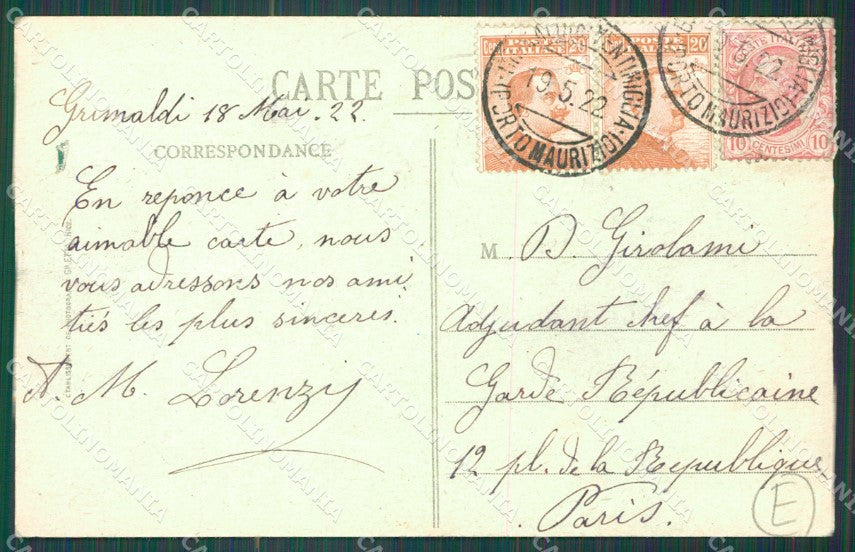 CARTE POS
Grimaldi 18 Mai. 22.
CORRESPONDANCE
En reponce à votre
aimable carte, nous
vous adressons nos ami
tiés les plus sinceres.
A. M. Lorenzy
M. D. Girolami
Adjudant chef à la
Garde Républicaine
12 pl. de la Republique
Paris.
E
POSTE
ITALIANE
20
19.5.22
VENTIMIGLIA
PORTO MAURIZIO
POSTE
ITALIANE
20
5.22
MIGLIA
PORTO MAURIZIO
10 CENTESIMI 10
CARTOLINOMANIA